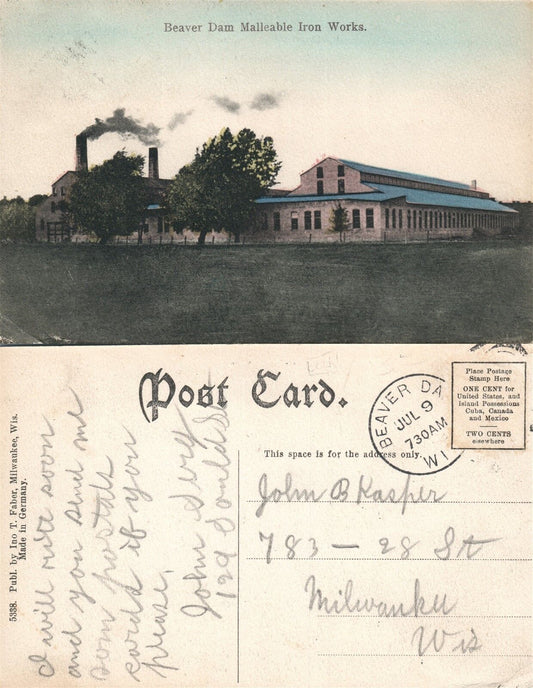 Beaver Dam Malleable Iron Works.
Post Card.
BEAVER DA
JUL 9
730AM
WI
Place Postage
Stamp Here
ONE CENT for
United States, and
Island Possessions
Cuba, Canada
and Mexico
TWO CENTS
elsewhere
This space is for the address only.
John B Kasper
783 — 28 St
Milwaukee
Wis
I will rite soon
and you send me
som postals
cards if you
please.
John
129 Gould St
5338. Publ. by Ino T. Faber, Milwaukee, Wis.
Made in Germany.